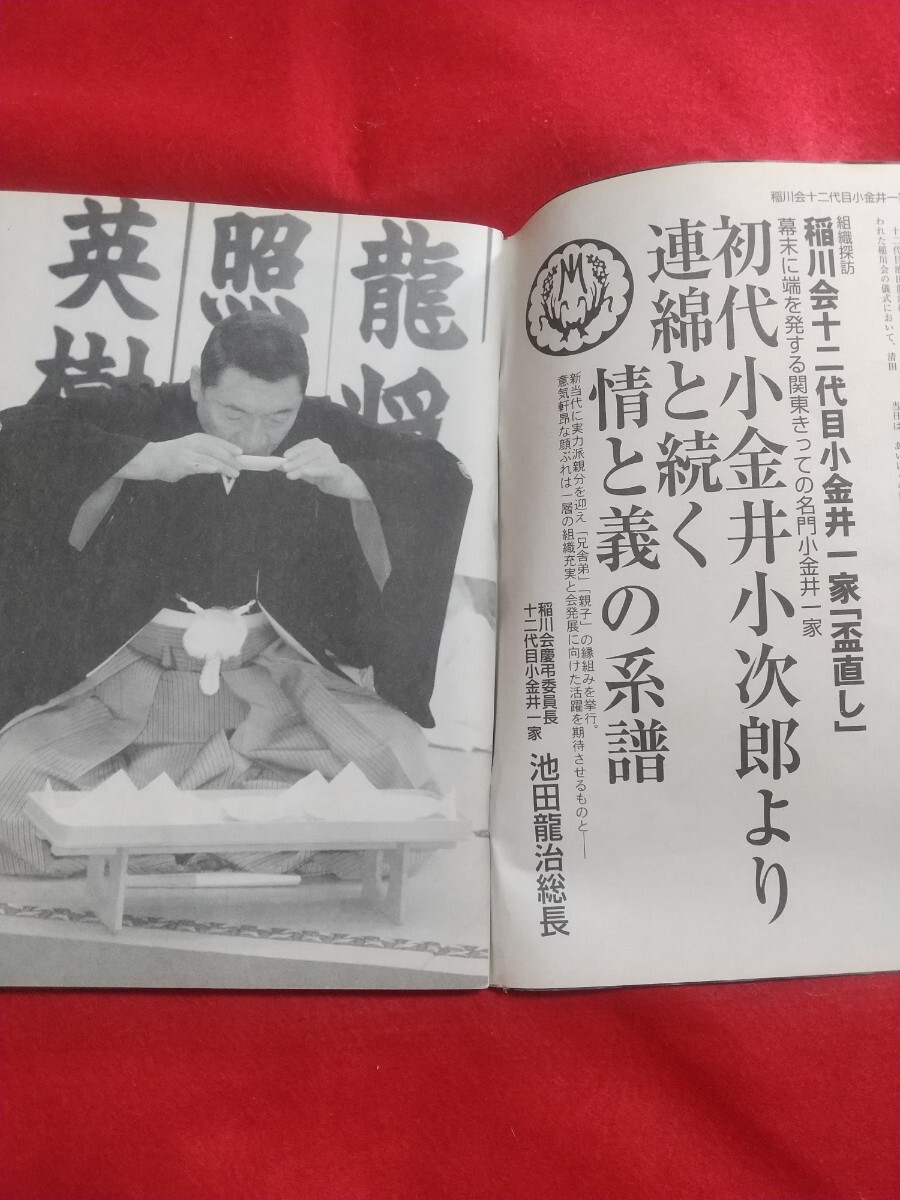 稲川会十二代目小金井一家
組織探訪
稲川会十二代目小金井一家「盃直し」
幕末に端を発する関東きっての名門小金井一家
初代小金井小次郎より
連綿と続く
情と義の系譜
新当代に実力派親分を迎え「兄舎弟」「親子」の縁組みを挙行。
意気軒昂な顔ぶれは一層の組織充実と会発展に向けた活躍を期待させるものと──
稲川会慶弔委員長
十二代目小金井一家
池田龍治総長
われた稲川会の儀式において、清田
龍
照
英樹